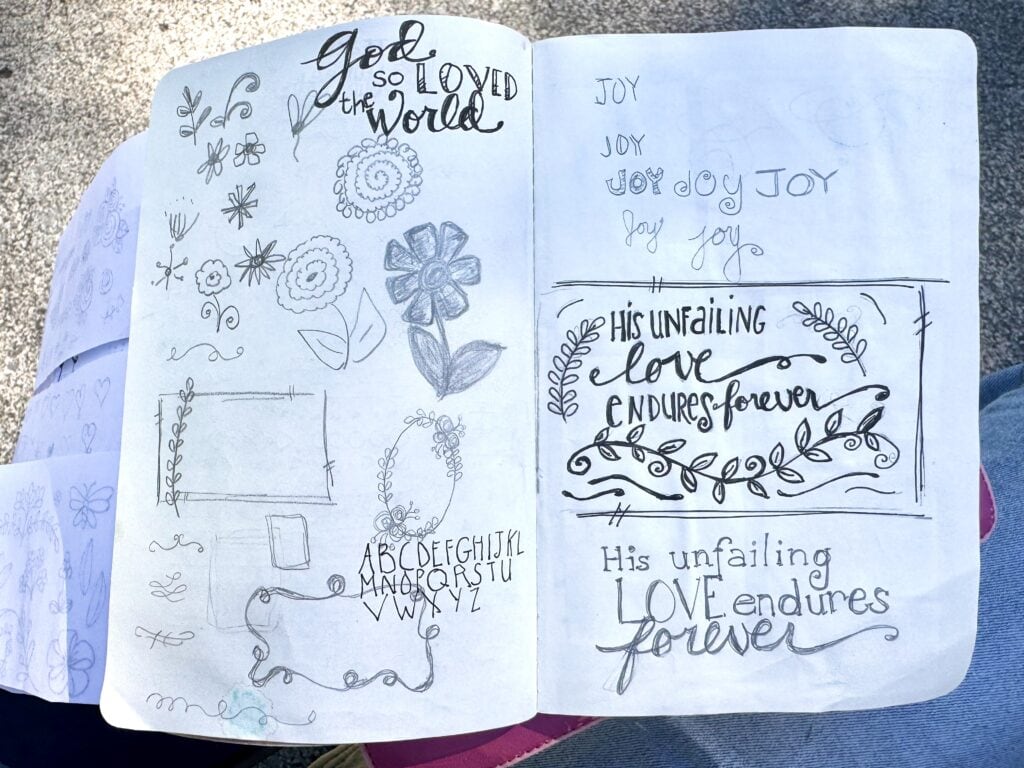 God
so LOVED
the World
ABCDEFGHIJKL
MNOPQRSTU
VWXYZ
JOY
JOY
JOY JOY JOY
Joy Joy
HiS UNFaiLiNG
love
ENDURES forever
His unfailing
LOVE endures
forever